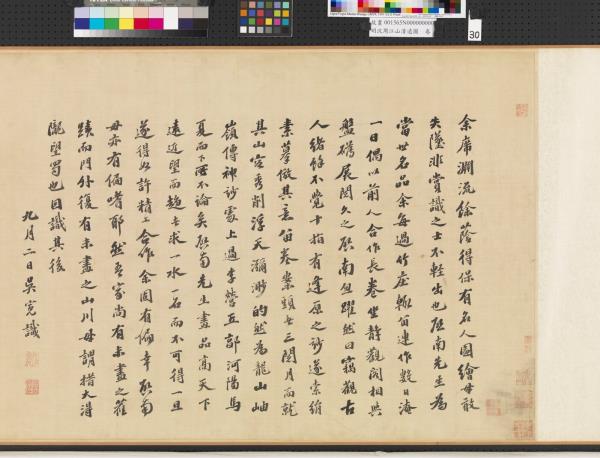 余席流餘蔭得保有名人圖繪毋敢
失墜非賞識之士不輕出也啟南先生為
當世名品余每過竹庄輒留連作數日淹
一日偶以前人合作長卷坐靜觀閣相與
盤礴展閱久之啟南躍然曰竊觀古
人緒餘不覺十指有逢原之妙遂索絹
素摹倣其意留卷案頭者三閱月而就
其山容秀削浮天瀰渺的然為龍山岫
嶺傳神妙處上過李營丘郭河陽馬
夏而下所不論矣啟南先生畫品高天下
遠近望而趨者求一水一石而不可得一旦
遂得如許精工合作余固有偏幸啟南
毋亦有偏嗜耶然吾家尚有未盡之
蹟而門外復有未盡之山川毋謂措大得
隴望蜀也因識其後
九月二日吳寬識
故畫 001565N000000000
明沈周江山清遠圖 卷
30